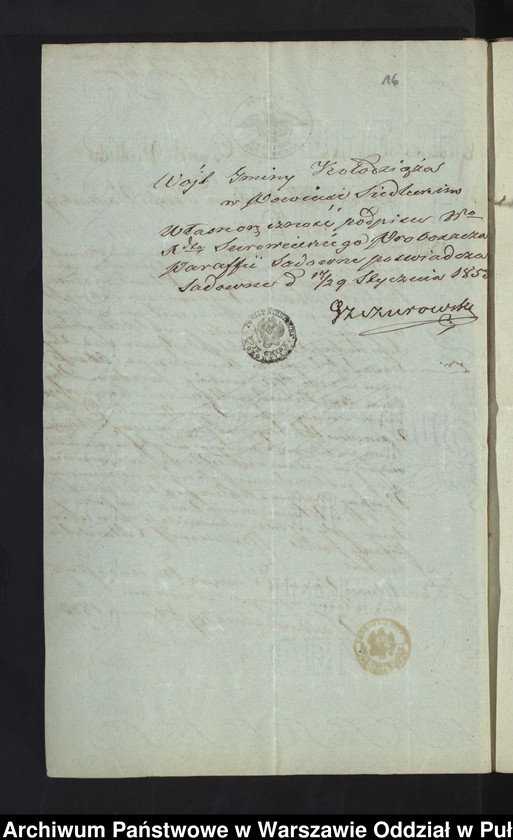 16
Wójt Gminy Kołodziąża
w Powiecie Siedleckim
Własnoręczność podpisu Wo
Xdza Surowieckiego Proboszcza
Paraffii Sadowne poświadcza
Sadowne d 17/29 Stycznia 185
Szczurowski
Archiwum Państwowe w Warszawie Oddział w Puł